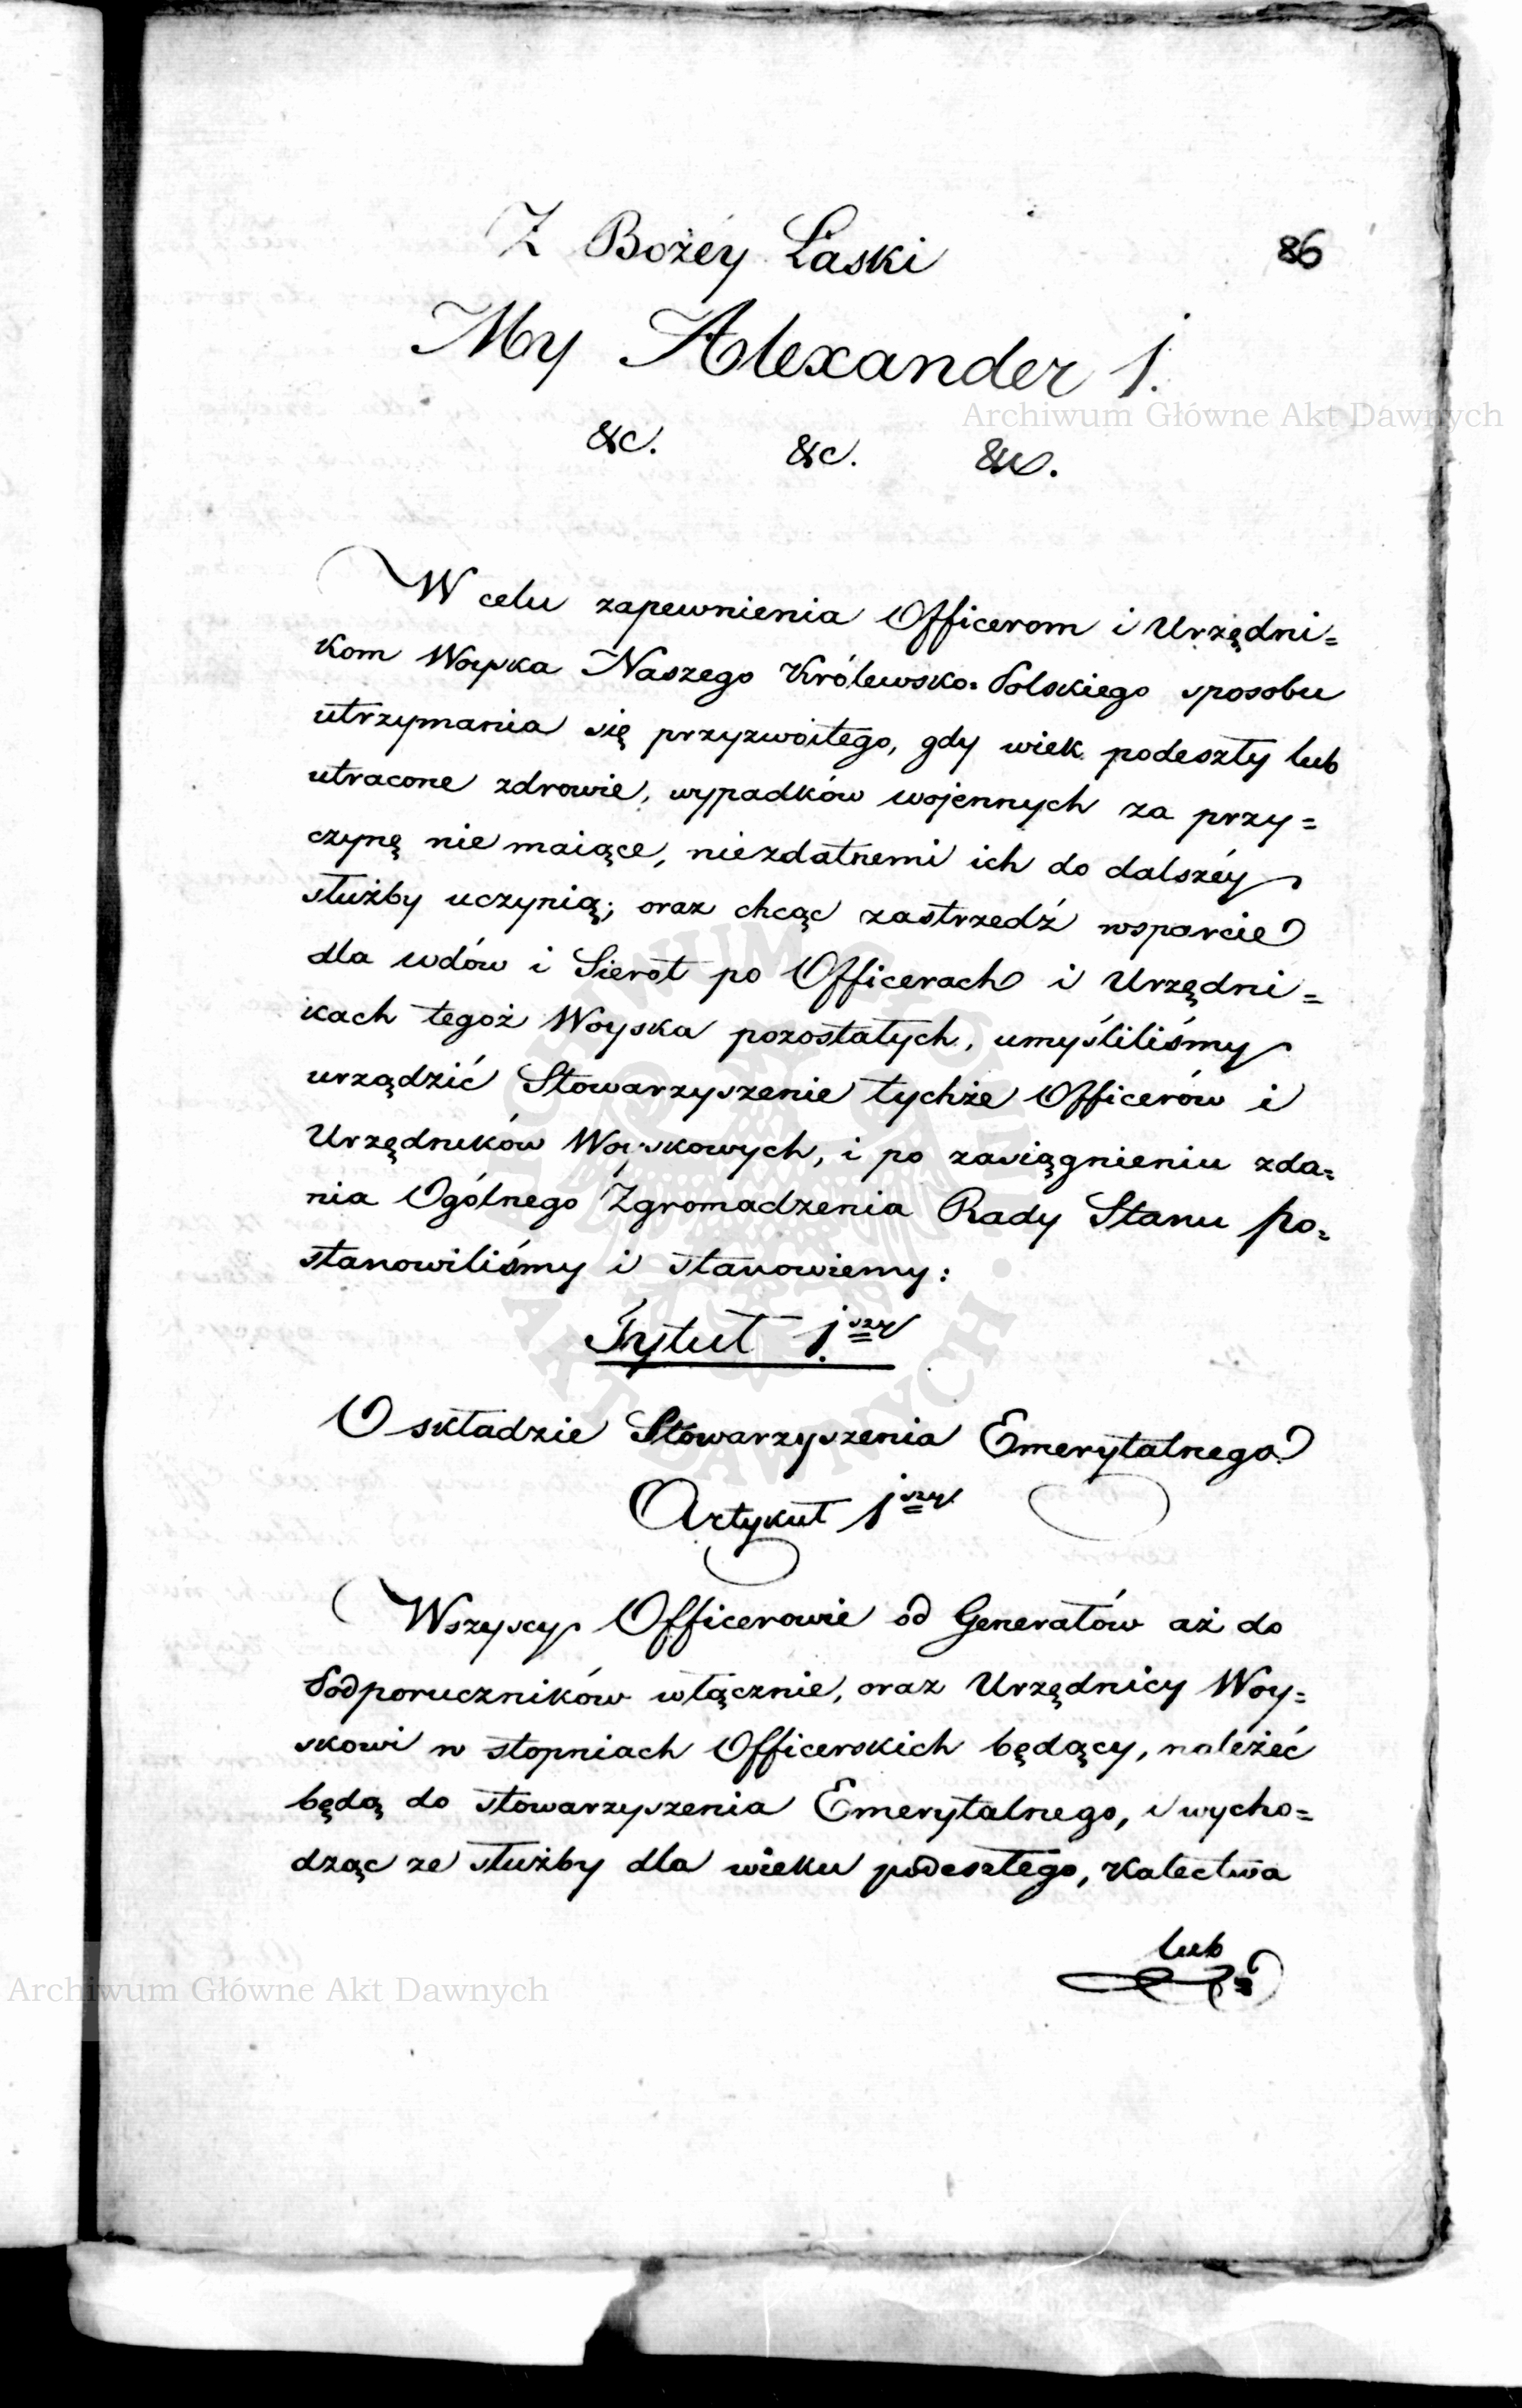 86
Z Bożéy Łaski
My Alexander I.
&c. &c. &c.
W celu zapewnienia Officerom i Urzędni=
kom Woyska Naszego Królewsko=Polskiego sposobu
utrzymania się przyzwoitego, gdy wiek podeszły lub
utracone zdrowie, wypadków wojennych za przy=
czynę nie maiące, niezdatnemi ich do dalszéy
służby uczynią; oraz chcąc zastrzedź wsparcie
dla wdów i Sierot po Officerach i Urzędni=
kach tegoż Woyska pozostałych, umyśliliśmy
urządzić Stowarzyszenie tychże Officerów i
Urzędników Woyskowych, i po zasiągnieniu zda=
nia Ogólnego Zgromadzenia Rady Stanu po=
stanowiliśmy i stanowiemy:
Tytuł 1.szy
O składzie Stowarzyszenia Emerytalnego
Artykuł 1szy
Wszyscy Officerowie od Generałów aż do
Podporuczników włącznie, oraz Urzędnicy Woy=
skowi w stopniach Officerskich będący, należéć
będą do stowarzyszenia Emerytalnego, i wycho=
dząc ze służby dla wieku podeszłego, kalectwa
lub
Archiwum Główne Akt Dawnych
ARCHIWUM GŁÓWNE AKT DAWNYCH
Archiwum Główne Akt Dawnych